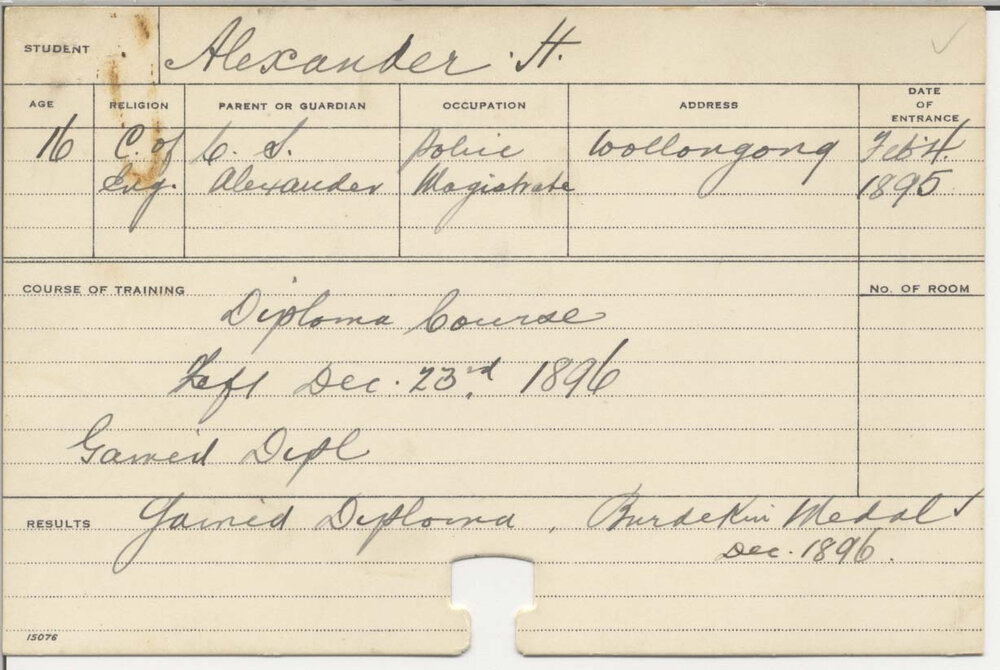 STUDENT Alexander H.
AGE RELIGION PARENT OR GUARDIAN OCCUPATION ADDRESS DATE OF ENTRANCE
16 C. of C. S. Police Wollongong Feb 4.
Eng. Alexander Magistrate 1895
COURSE OF TRAINING No. OF ROOM
Diploma Course
Left Dec. 23rd 1896
Gained Dipl
RESULTS Gained Diploma, Burdekin Medal
Dec. 1896.
15076